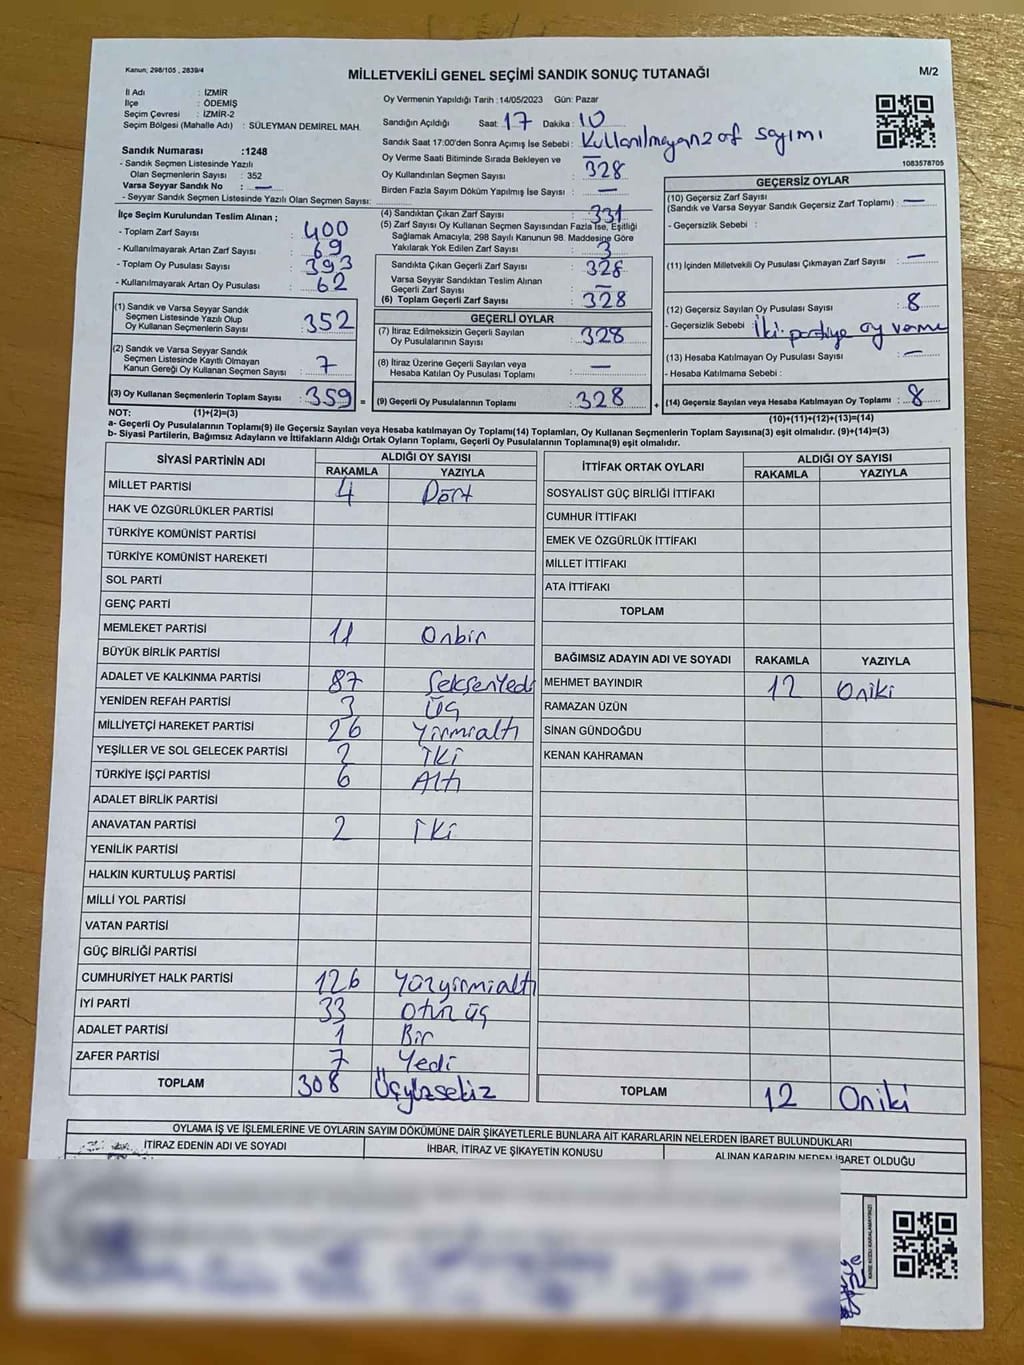 Kanun; 298/105 , 2839/4
MİLLETVEKİLİ GENEL SEÇİMİ SANDIK SONUÇ TUTANAĞI
M/2
İl Adı : İZMİR
İlçe : ÖDEMİŞ
Seçim Çevresi : İZMİR-2
Seçim Bölgesi (Mahalle Adı) : SÜLEYMAN DEMİREL MAH.
Sandık Numarası :1248
- Sandık Seçmen Listesinde Yazılı
Olan Seçmenlerin Sayısı : 352
Varsa Seyyar Sandık No : —
- Seyyar Sandık Seçmen Listesinde Yazılı Olan Seçmen Sayısı:
Oy Vermenin Yapıldığı Tarih :14/05/2023 Gün: Pazar
Sandığın Açıldığı Saat: 17 Dakika: 10
Sandık Saat 17:00'den Sonra Açımış İse Sebebi: Kullanılmayan zof sayımı
Oy Verme Saati Bitiminde Sırada Bekleyen ve
Oy Kullandırılan Seçmen Sayısı : 328
Birden Fazla Sayım Döküm Yapılmış İse Sayısı : —
1083578705
İlçe Seçim Kurulundan Teslim Alınan ;
- Toplam Zarf Sayısı : 400
- Kullanılmayarak Artan Zarf Sayısı : 69
- Toplam Oy Pusulası Sayısı : 393
- Kullanılmayarak Artan Oy Pusulası : 62
(1) Sandık ve Varsa Seyyar Sandık
Seçmen Listesinde Yazılı Olup
Oy Kullanan Seçmenlerin Sayısı : 352
(2) Sandık ve Varsa Seyyar Sandık
Seçmen Listesinde Kayıtlı Olmayan
Kanun Gereği Oy Kullanan Seçmen Sayısı : 7
(3) Oy Kullanan Seçmenlerin Toplam Sayısı : 359 =
(4) Sandıktan Çıkan Zarf Sayısı : 331
(5) Zarf Sayısı Oy Kullanan Seçmen Sayısından Fazla İse, Eşitliği
Sağlamak Amacıyla, 298 Sayılı Kanunun 98. Maddesine Göre
Yakılarak Yok Edilen Zarf Sayısı : 3
Sandıkta Çıkan Geçerli Zarf Sayısı : 328
Varsa Seyyar Sandıktan Teslim Alınan
Geçerli Zarf Sayısı : —
(6) Toplam Geçerli Zarf Sayısı : 328
GEÇERLİ OYLAR
(7) İtiraz Edilmeksizin Geçerli Sayılan
Oy Pusulalarının Sayısı : 328
(8) İtiraz Üzerine Geçerli Sayılan veya
Hesaba Katılan Oy Pusulası Toplamı : —
(9) Geçerli Oy Pusulalarının Toplamı : 328 +
GEÇERSİZ OYLAR
(10) Geçersiz Zarf Sayısı
(Sandık ve Varsa Seyyar Sandık Geçersiz Zarf Toplamı) : —
- Geçersizlik Sebebi :
(11) İçinden Milletvekili Oy Pusulası Çıkmayan Zarf Sayısı : —
(12) Geçersiz Sayılan Oy Pusulası Sayısı : 8
- Geçersizlik Sebebi : İki partiye oy verme
(13) Hesaba Katılmayan Oy Pusulası Sayısı : —
- Hesaba Katılmama Sebebi :
(14) Geçersiz Sayılan veya Hesaba Katılmayan Oy Toplamı : 8
NOT: (1)+(2)=(3)
(10)+(11)+(12)+(13)=(14)
a- Geçerli Oy Pusulalarının Toplamı(9) ile Geçersiz Sayılan veya Hesaba katılmayan Oy Toplamı(14) Toplamları, Oy Kullanan Seçmenlerin Toplam Sayısına(3) eşit olmalıdır. (9)+(14)=(3)
b- Siyasi Partilerin, Bağımsız Adayların ve İttifakların Aldığı Ortak Oyların Toplamı, Geçerli Oy Pusulalarının Toplamına(9) eşit olmalıdır.
SİYASİ PARTİNİN ADI ALDIĞI OY SAYISI
RAKAMLA YAZIYLA
MİLLET PARTİSİ 4 Dört
HAK VE ÖZGÜRLÜKLER PARTİSİ
TÜRKİYE KOMÜNİST PARTİSİ
TÜRKİYE KOMÜNİST HAREKETİ
SOL PARTİ
GENÇ PARTİ
MEMLEKET PARTİSİ 11 Onbir
BÜYÜK BİRLİK PARTİSİ
ADALET VE KALKINMA PARTİSİ 87 Seksenyedi
YENİDEN REFAH PARTİSİ 3 Üç
MİLLİYETÇİ HAREKET PARTİSİ 26 Yirmialtı
YEŞİLLER VE SOL GELECEK PARTİSİ 2 İki
TÜRKİYE İŞÇİ PARTİSİ 6 Altı
ADALET BİRLİK PARTİSİ
ANAVATAN PARTİSİ 2 İki
YENİLİK PARTİSİ
HALKIN KURTULUŞ PARTİSİ
MİLLİ YOL PARTİSİ
VATAN PARTİSİ
GÜÇ BİRLİĞİ PARTİSİ
CUMHURİYET HALK PARTİSİ 126 Yüzyirmialtı
İYİ PARTİ 33 Otuz üç
ADALET PARTİSİ 1 Bir
ZAFER PARTİSİ 7 Yedi
TOPLAM 308 Üçyüzsekiz
İTTİFAK ORTAK OYLARI ALDIĞI OY SAYISI
RAKAMLA YAZIYLA
SOSYALİST GÜÇ BİRLİĞİ İTTİFAKI
CUMHUR İTTİFAKI
EMEK VE ÖZGÜRLÜK İTTİFAKI
MİLLET İTTİFAKI
ATA İTTİFAKI
TOPLAM
BAĞIMSIZ ADAYIN ADI VE SOYADI RAKAMLA YAZIYLA
MEHMET BAYINDIR 12 Oniki
RAMAZAN ÜZÜN
SİNAN GÜNDOĞDU
KENAN KAHRAMAN
TOPLAM 12 Oniki
OYLAMA İŞ VE İŞLEMLERİNE VE OYLARIN SAYIM DÖKÜMÜNE DAİR ŞİKAYETLERLE BUNLARA AİT KARARLARIN NELERDEN İBARET BULUNDUKLARI
İTİRAZ EDENİN ADI VE SOYADI İHBAR, İTİRAZ VE ŞİKAYETİN KONUSU ALINAN KARARIN NEDEN İBARET OLDUĞU
KARE KODU KARALAMAYINIZ!